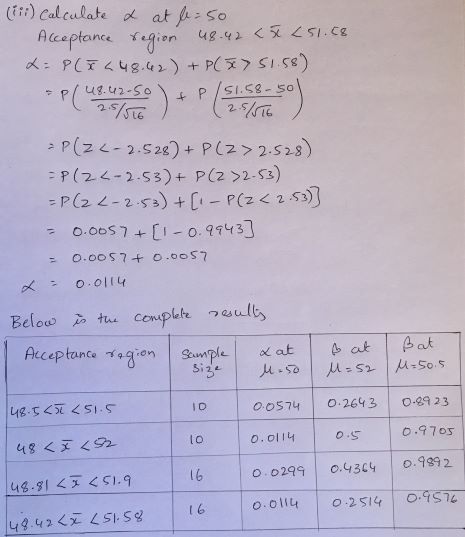 (iii) Calculate α at μ = 50
Acceptance region 48.42 < x̄ < 51.58
α = P(x̄ < 48.42) + P(x̄ > 51.58)
= P(48.42-50 / 2.5/√16) + P(51.58-50 / 2.5/√16)
= P(Z < -2.528) + P(Z > 2.528)
= P(Z < -2.53) + P(Z > 2.53)
= P(Z < -2.53) + [1 - P(Z < 2.53)]
= 0.0057 + [1 - 0.9943]
= 0.0057 + 0.0057
α = 0.0114
Below is the complete results
Acceptance region | Sample size | α at μ = 50 | β at μ = 52 | β at μ = 50.5
48.5 < x̄ < 51.5 | 10 | 0.0574 | 0.2643 | 0.8923
48 < x̄ < 52 | 10 | 0.0114 | 0.5 | 0.9705
48.81 < x̄ < 51.9 | 16 | 0.0299 | 0.4364 | 0.9892
48.42 < x̄ < 51.58 | 16 | 0.0114 | 0.2514 | 0.9576